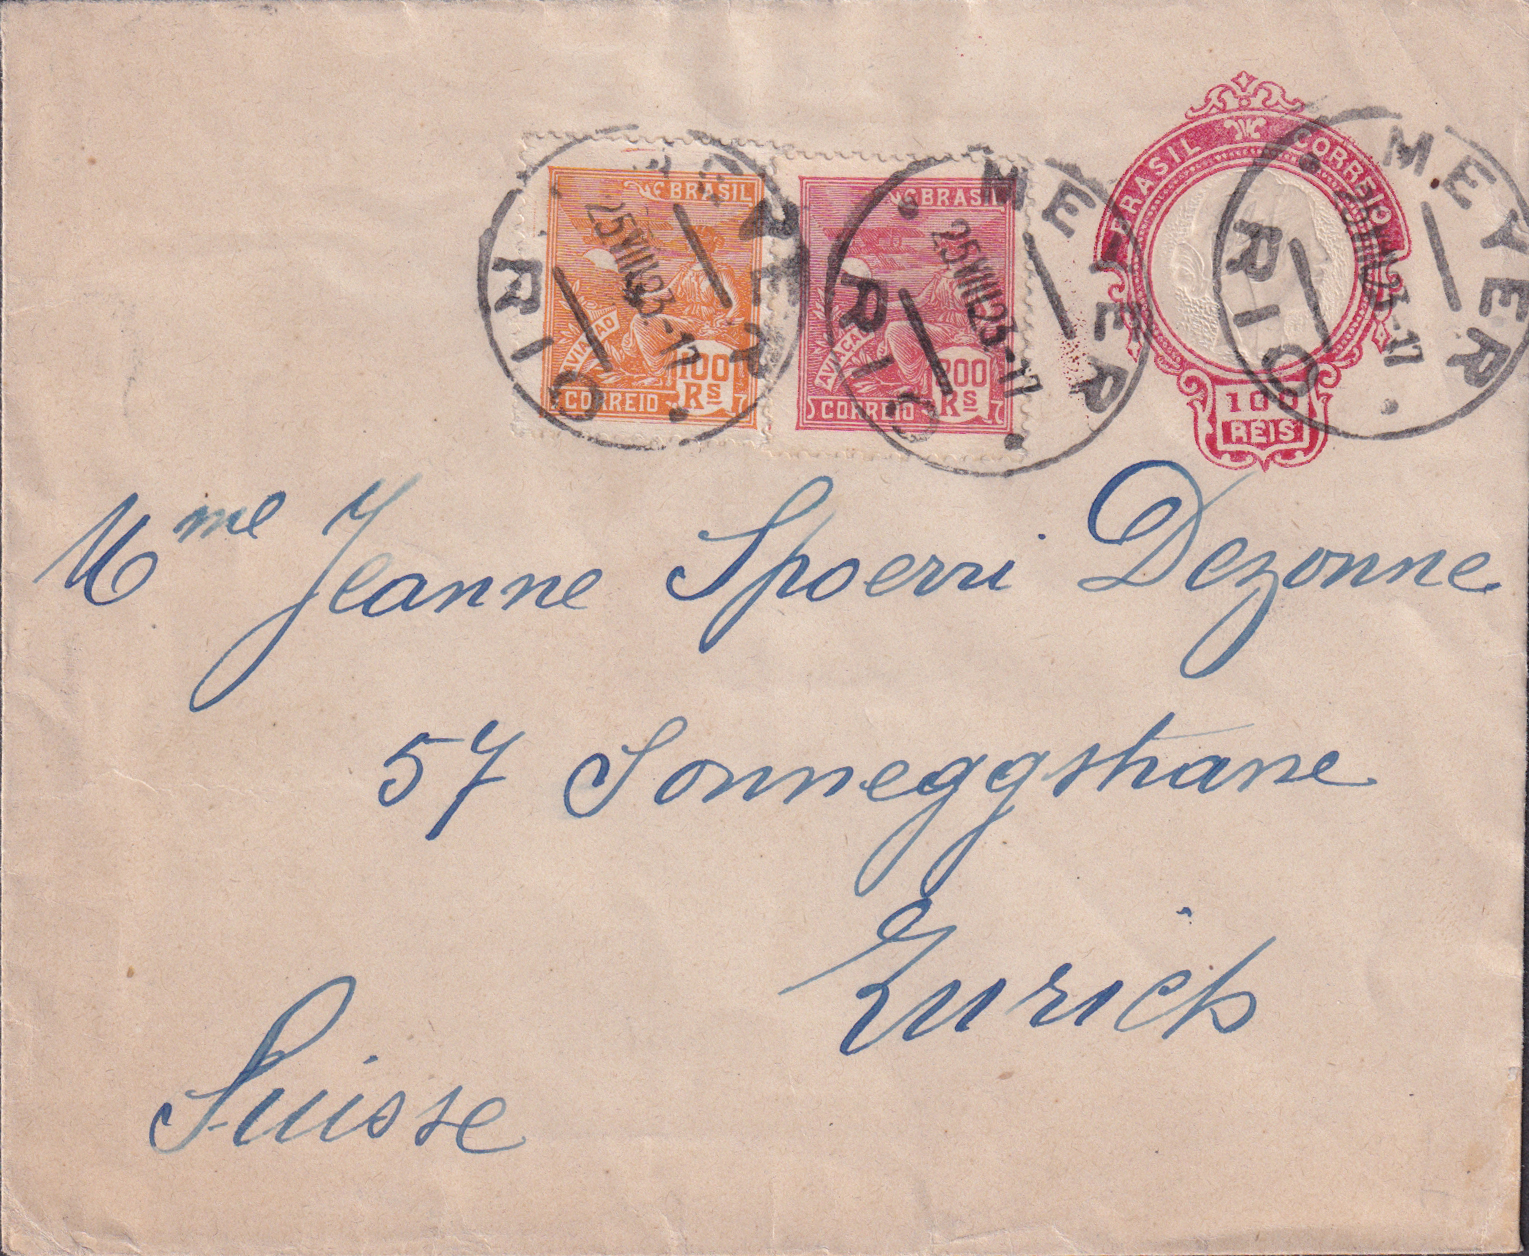 BRASIL
AVIAÇÃO
100 Rs
CORREIO
BRASIL
AVIAÇÃO
200 Rs
CORREIO
BRASIL CORREIO
100
REIS
MEYER
RIO
25 VIII 23.-17
MEYER
RIO
25 VIII 23-17
MEYER
RIO
Mme Jeanne Spoerri Dezonne
57 Sonneggstrasse
Zurich
Suisse